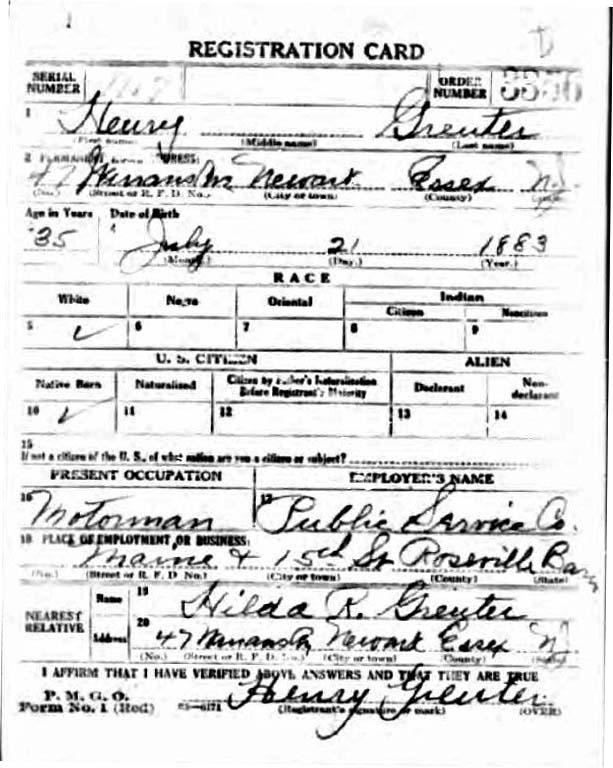 REGISTRATION CARD
SERIAL NUMBER
ORDER NUMBER
1 Henry Greuter
(First name) (Middle name) (Last name)
2 PERMANENT HOME ADDRESS:
47 Newark Essex N.J.
(No.) (Street or R. F. D. No.) (City or town) (County) (State)
Age in Years Date of Birth
35 July 21 1883
(Month.) (Day.) (Year.)
RACE
White Negro Oriental Indian
Citizen Noncitizen
5 ✓ 6 7 8 9
U. S. CITIZEN ALIEN
Native Born Naturalized Citizen by Father's Naturalization Before Registrant's Majority Declarant Non-declarant
10 ✓ 11 12 13 14
15
If not a citizen of the U. S., of what nation are you a citizen or subject?
PRESENT OCCUPATION EMPLOYER'S NAME
16 Motorman 17 Public Service Co.
18 PLACE OF EMPLOYMENT OR BUSINESS:
& 15th St Roseville
(No.) (Street or R. F. D. No.) (City or town) (County) (State)
NEAREST RELATIVE
Name 19 Hilda R. Greuter
Address 20 47 Newark Essex N.J.
(No.) (Street or R. F. D. No.) (City or town) (County) (State)
I AFFIRM THAT I HAVE VERIFIED ABOVE ANSWERS AND THAT THEY ARE TRUE
P. M. G. O.
Form No. 1 (Red) 03—6171 Henry Greuter
(Registrant's signature or mark) (OVER)